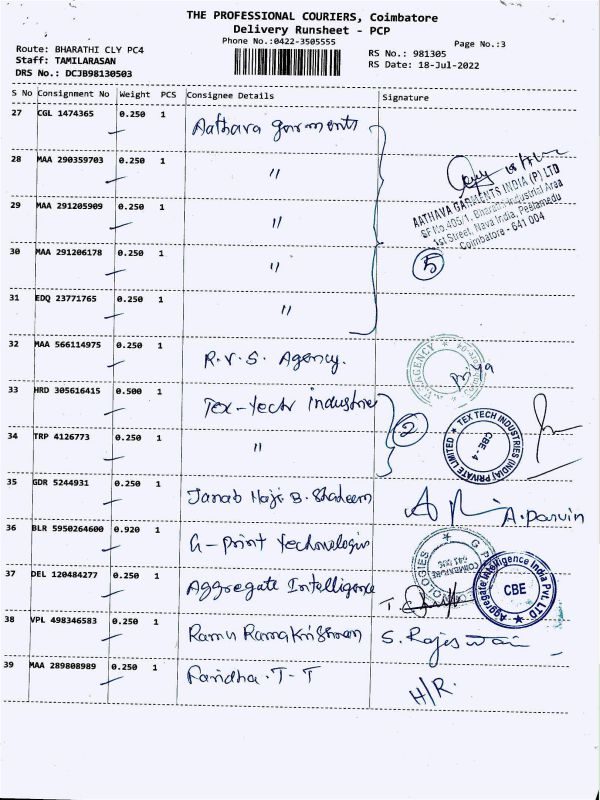 THE PROFESSIONAL COURIERS, Coimbatore
Delivery Runsheet - PCP
Phone No.:0422-3505555
Page No.:3
Route: BHARATHI CLY PC4
RS No.: 981305
Staff: TAMILARASAN
RS Date: 18-Jul-2022
DRS No.: DCJB98130503
S No Consignment No Weight PCS Consignee Details Signature
27 CGL 1474365 0.250 1 Aathava garments
28 MAA 290359703 0.250 1 "
AATHAVA GARMENTS INDIA (P) LTD
SF No.405/1, Bharathi Industrial Area
1st Street, Nava India, Peelamedu
Coimbatore - 641 004
29 MAA 291205909 0.250 1 "
30 MAA 291206178 0.250 1 "
5
31 EDQ 23771765 0.250 1 "
32 MAA 566114975 0.250 1 R.V.S. Agency.
AGENCY
33 HRD 305616415 0.500 1 Tex-Tech industries
2
TEX TECH INDUSTRIES (INDIA) PRIVATE LIMITED
CBE - 4
34 TRP 4126773 0.250 1 "
35 GDR 5244931 0.250 1 Janab Haji B. Shadeem
A. Parvin
36 BLR 5950264600 0.920 1 G-Print Technologin
37 DEL 120484277 0.250 1 Aggregate Intelligence
Aggregate Intelligence India Pvt. LTD
CBE
38 VPL 498346583 0.250 1 Ramu Ramakrishnan S. Rajeswari
39 MAA 289808989 0.250 1 Faridha. T-T H/R.